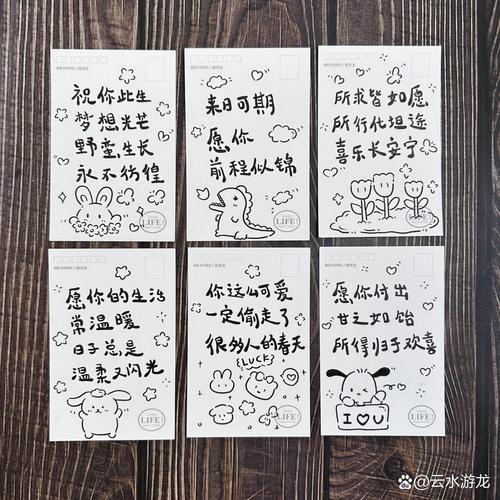 祝你此生
梦想光芒
野蛮生长
永不彷徨
LIFE!
来日可期
愿你
前程似锦
LIFE!
所求皆如愿
所行化坦途
喜乐长安宁
LIFE!
愿你的生活
常温暖
日子总是
温柔又闪光
LIFE!
你这么可爱
一定偷走了
很多人的春天
LUCK
LIFE!
愿你付出
甘之如饴
所得归于欢喜
I♡U
LIFE!
@云水游龙